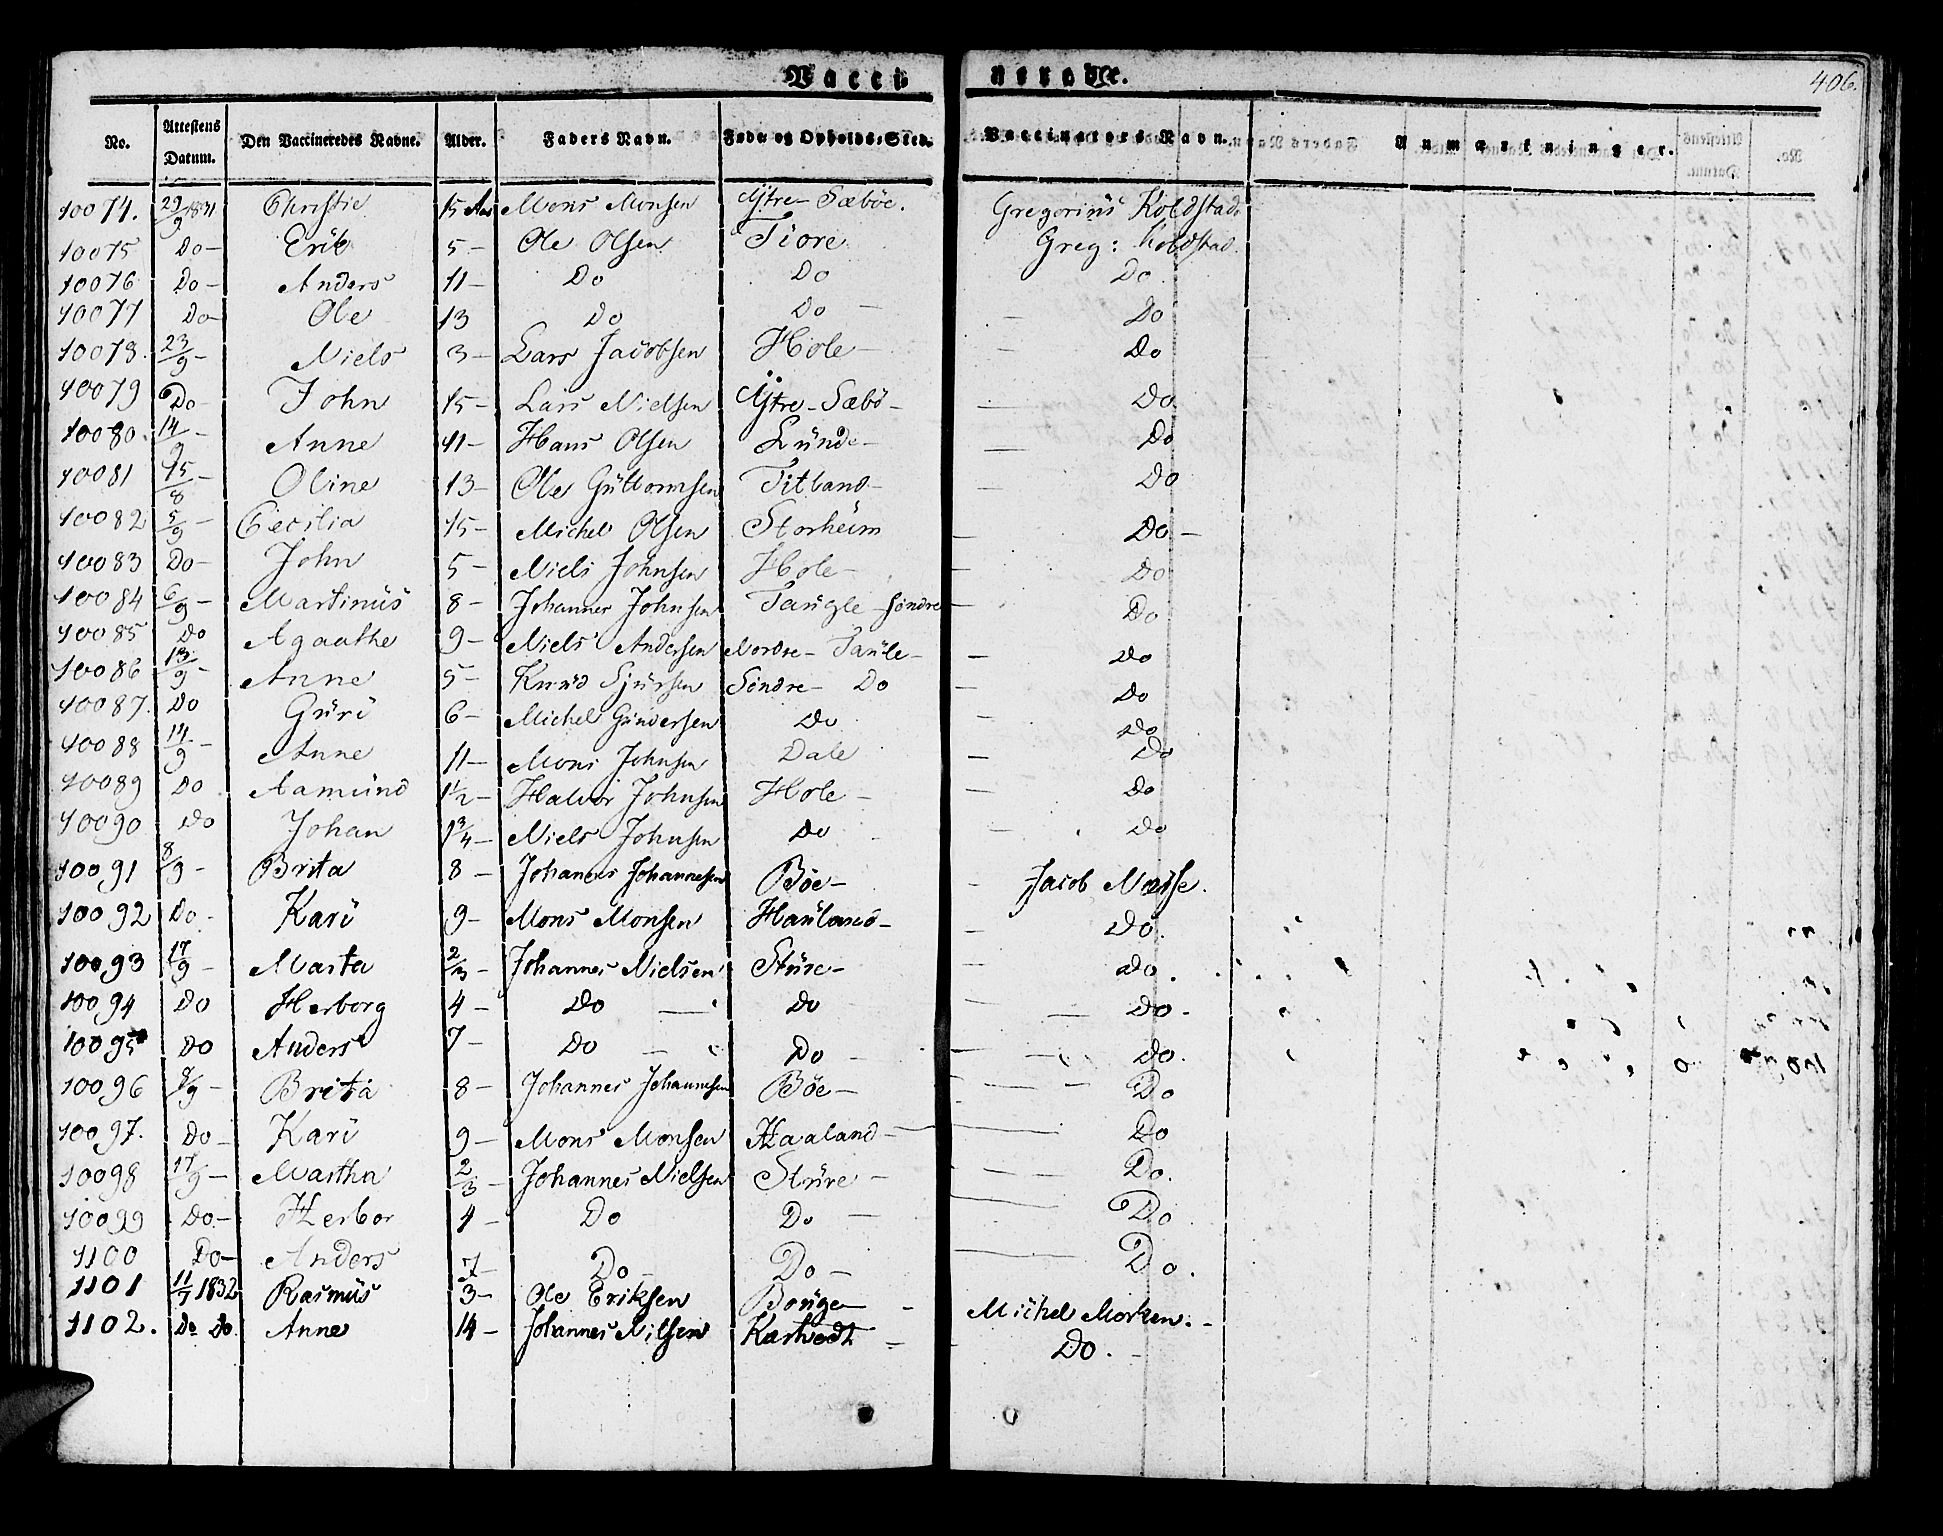 Vacci nerede.
406.
No. Attestens Datum. Den Vaccineredes Navne. Alder. Faders Navn. Føde og Opholds-Sted. Vaccinateurs Navn. Anmærkninger.
10074. 29/9 1831 Christie 15 Aar Mons Monsen Ÿtre- Sæbøe. Gregorius Koldstad.
10075 Do- Erik 5- Ole Olsen Tiore Greg: Koldstad.
10076 Do- Anders 11- Do Do Do
10077 Do- Ole 13 Do Do - - Do
10078. 23/9- Niels 3- Lars Jacobsen Hole - Do
10079 Do- John 15- Lars Nielsen Ÿtre- Sæbø- - Do
10080. 14/9- Anne 11- Hans Olsen Lünde- - Do
10081 15/8- Oline 13- Ole Güttormsen Titland- - Do
10082 5/9- Cecilia 15- Michel Olsen Storheim - Do-
10083 Do- John 5- Niels Johnsen Hole- - Do
10084 6/9- Martinüs 8- Johannes Johnsen Taugle-Søndre- Do
10085 Do Agaathe 9- Niels Andersen Nordre- Taule- - Do
10086 13/9- Anne 5- Knüd Sjursen Søndre- Do - Do
10087. Do Güri 6- Michel Gündersen Do - Do
10088 14/9- Anne 11- Mons Johnsen Dale - Do
10089 Do Aamünd 1½- Halvor Johnsen Hole- - Do
10090 Do Johan 1¾- Niels Johnsen Do - Do
10091 8/9- Brita 8- Johannes Johannesen Bøe- - Jacob Næsse.
10092 Do- Kari 9- Mons Monsen Haüland- - Do.
10093 17/9- Marta 2/3- Johannes Nielsen Stüre- - Do.
10094 Do Herborg 4- Do - Do - Do.
10095 Do Anders 7- Do - Do - - Do.
10096 8/9- Brita 8- Johannes Johannesen Bøe- - Do
10097. Do- Kari 9- Mons Monsen Haaland- - Do
10098 17/9- Martha 2/3- Johannes Nielsen Stüre- - Do.
10099 Do- Herbor 4- Do Do - - Do
1100 Do- Anders 7- Do- Do- - Do.
1101 11/7 1832 Rasmüs 3- Ole Eriksen Bouge- - Michel Morken.-
1102. Do Do. Anne 14- Johannes Nilsen - Do.-